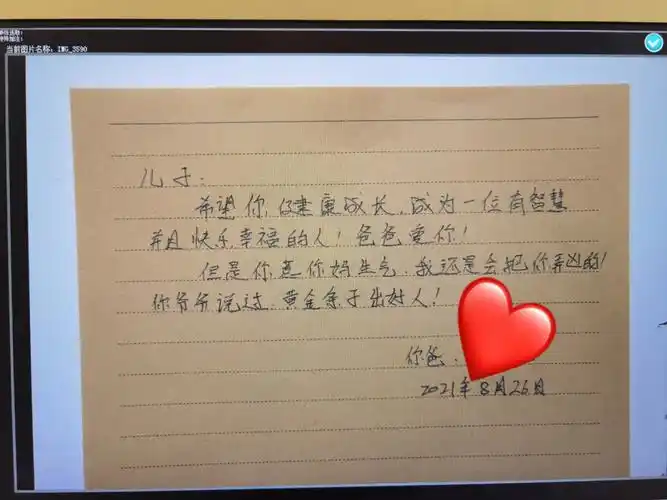 当前图片名称：IMG_3590
儿子：
希望你健康成长，成为一位有智慧
并且快乐幸福的人！爸爸爱你！
但是你惹你妈生气，我还是会把你弄凶的！
你爷爷说过，黄金条子出好人！
你爸．
2021年8月26日